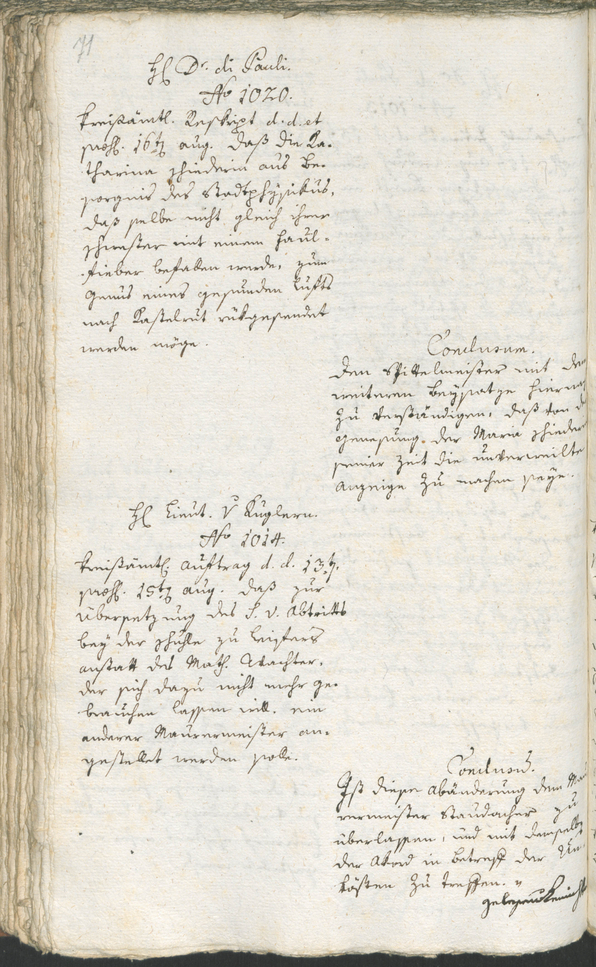 71
H Dr. di Pauli.
No 1020.
Kreisämtl. Reskript d. d. et
praes. 16ten aug. daß die Ka-
tharina Schiederin aus Be-
sorgnis des Stadtphysikus,
daß selbe nicht gleich ihrer
Schwester mit einem Faul-
fieber befallen werde, zum
Genus eines gesunden Lufts
nach Kastelrut rükgesendet
werden möge.
Conclusum.
Den Spittelmeister mit dem
weiteren Beysatze hiervon
zu verständigen, daß von der
Genesung der Maria Schieder
seiner Zeit die unverweilte
Anzeige zu machen seye.
H Lieut. v Kuglern.
No 1014.
Kreisämtl. Auftrag d. d. 13t.
praes. 15ten aug. daß zur
Übersetzung des S. v. Abtritts
bey der Schuhle zu Leifers
anstatt des Math. Wachter,
der sich dazu nicht mehr ge-
brauchen lassen will, ein
anderer Maurermeister an-
gestellet werden solle.
Conclus.
Ist diese Abänderung dem Mau
rermeister Staudacher zu
überlassen, und mit demselben
der Akord in Betreff der Un-
kösten zu treffen.